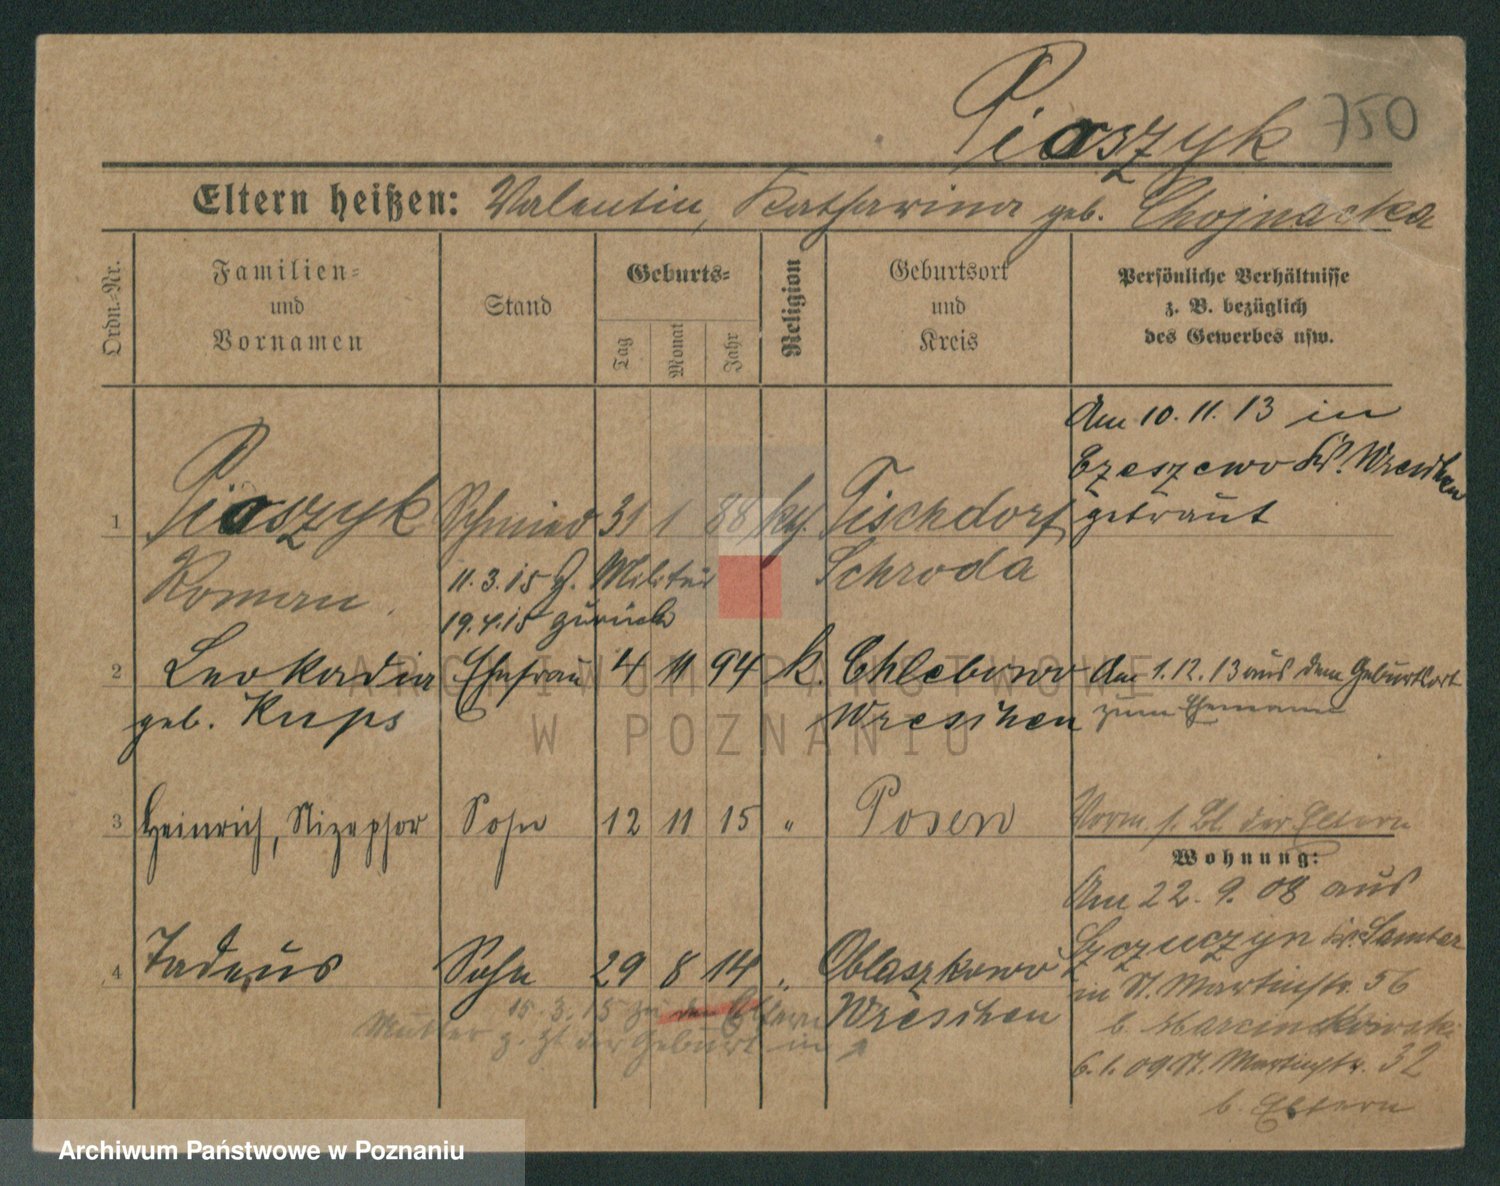 Piaszyk 750
Eltern heißen: Valentin, Katharina geb. Chojnacka
Ordn.-Nr.
Familien-
und
Vornamen
Stand
Geburts-
Tag
Monat
Jahr
Religion
Geburtsort
und
Kreis
Persönliche Verhältnisse
z. B. bezüglich
des Gewerbes usw.
1 Piaszyk Schmied 31 1 88 kth. Tischdorf
Roman Schroda
11.3.15 z. Militär
19.4.15 zurück
Am 10.11.13 in
Czeszewo Kr. Wreschen
getraut
2 Leokadia Ehefrau 4 11 94 k. Chlebowo
geb. Kups Wreschen
Am 1.12.13 aus dem Geburtsort
zum Ehemann
3 Heinrich, Nizephor Sohn 12 11 15 " Posen
Vorm s. Bl. der Eltern
4 Tadeus Sohn 29 8 14 " Oblaszkowo
Wreschen
15.3.15 zu den Eltern
Mutter z. Zt. der Geburt in
Wohnung:
Am 22.9.08 aus
Szczuczyn Kr. Samter
in St. Martinstr. 56
b. Marcinkowski
6.1.09 St. Martinstr. 32
b. Eltern
ARCHIWUM PAŃSTWOWE
W POZNANIU
Archiwum Państwowe w Poznaniu